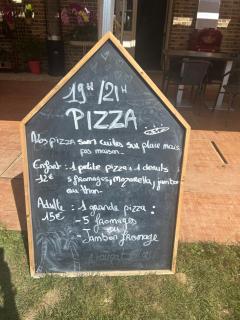 19H/21H
PIZZA
Nos pizza sont cuites sur place mais
pas maison
Enfant : 1 petite pizza + 1 donuts
12€ 5 fromages, mozzarella, jambon
ou thon
Adulte : 1 grande pizza :
15€ - 5 fromages
ou
- Jambon fromage